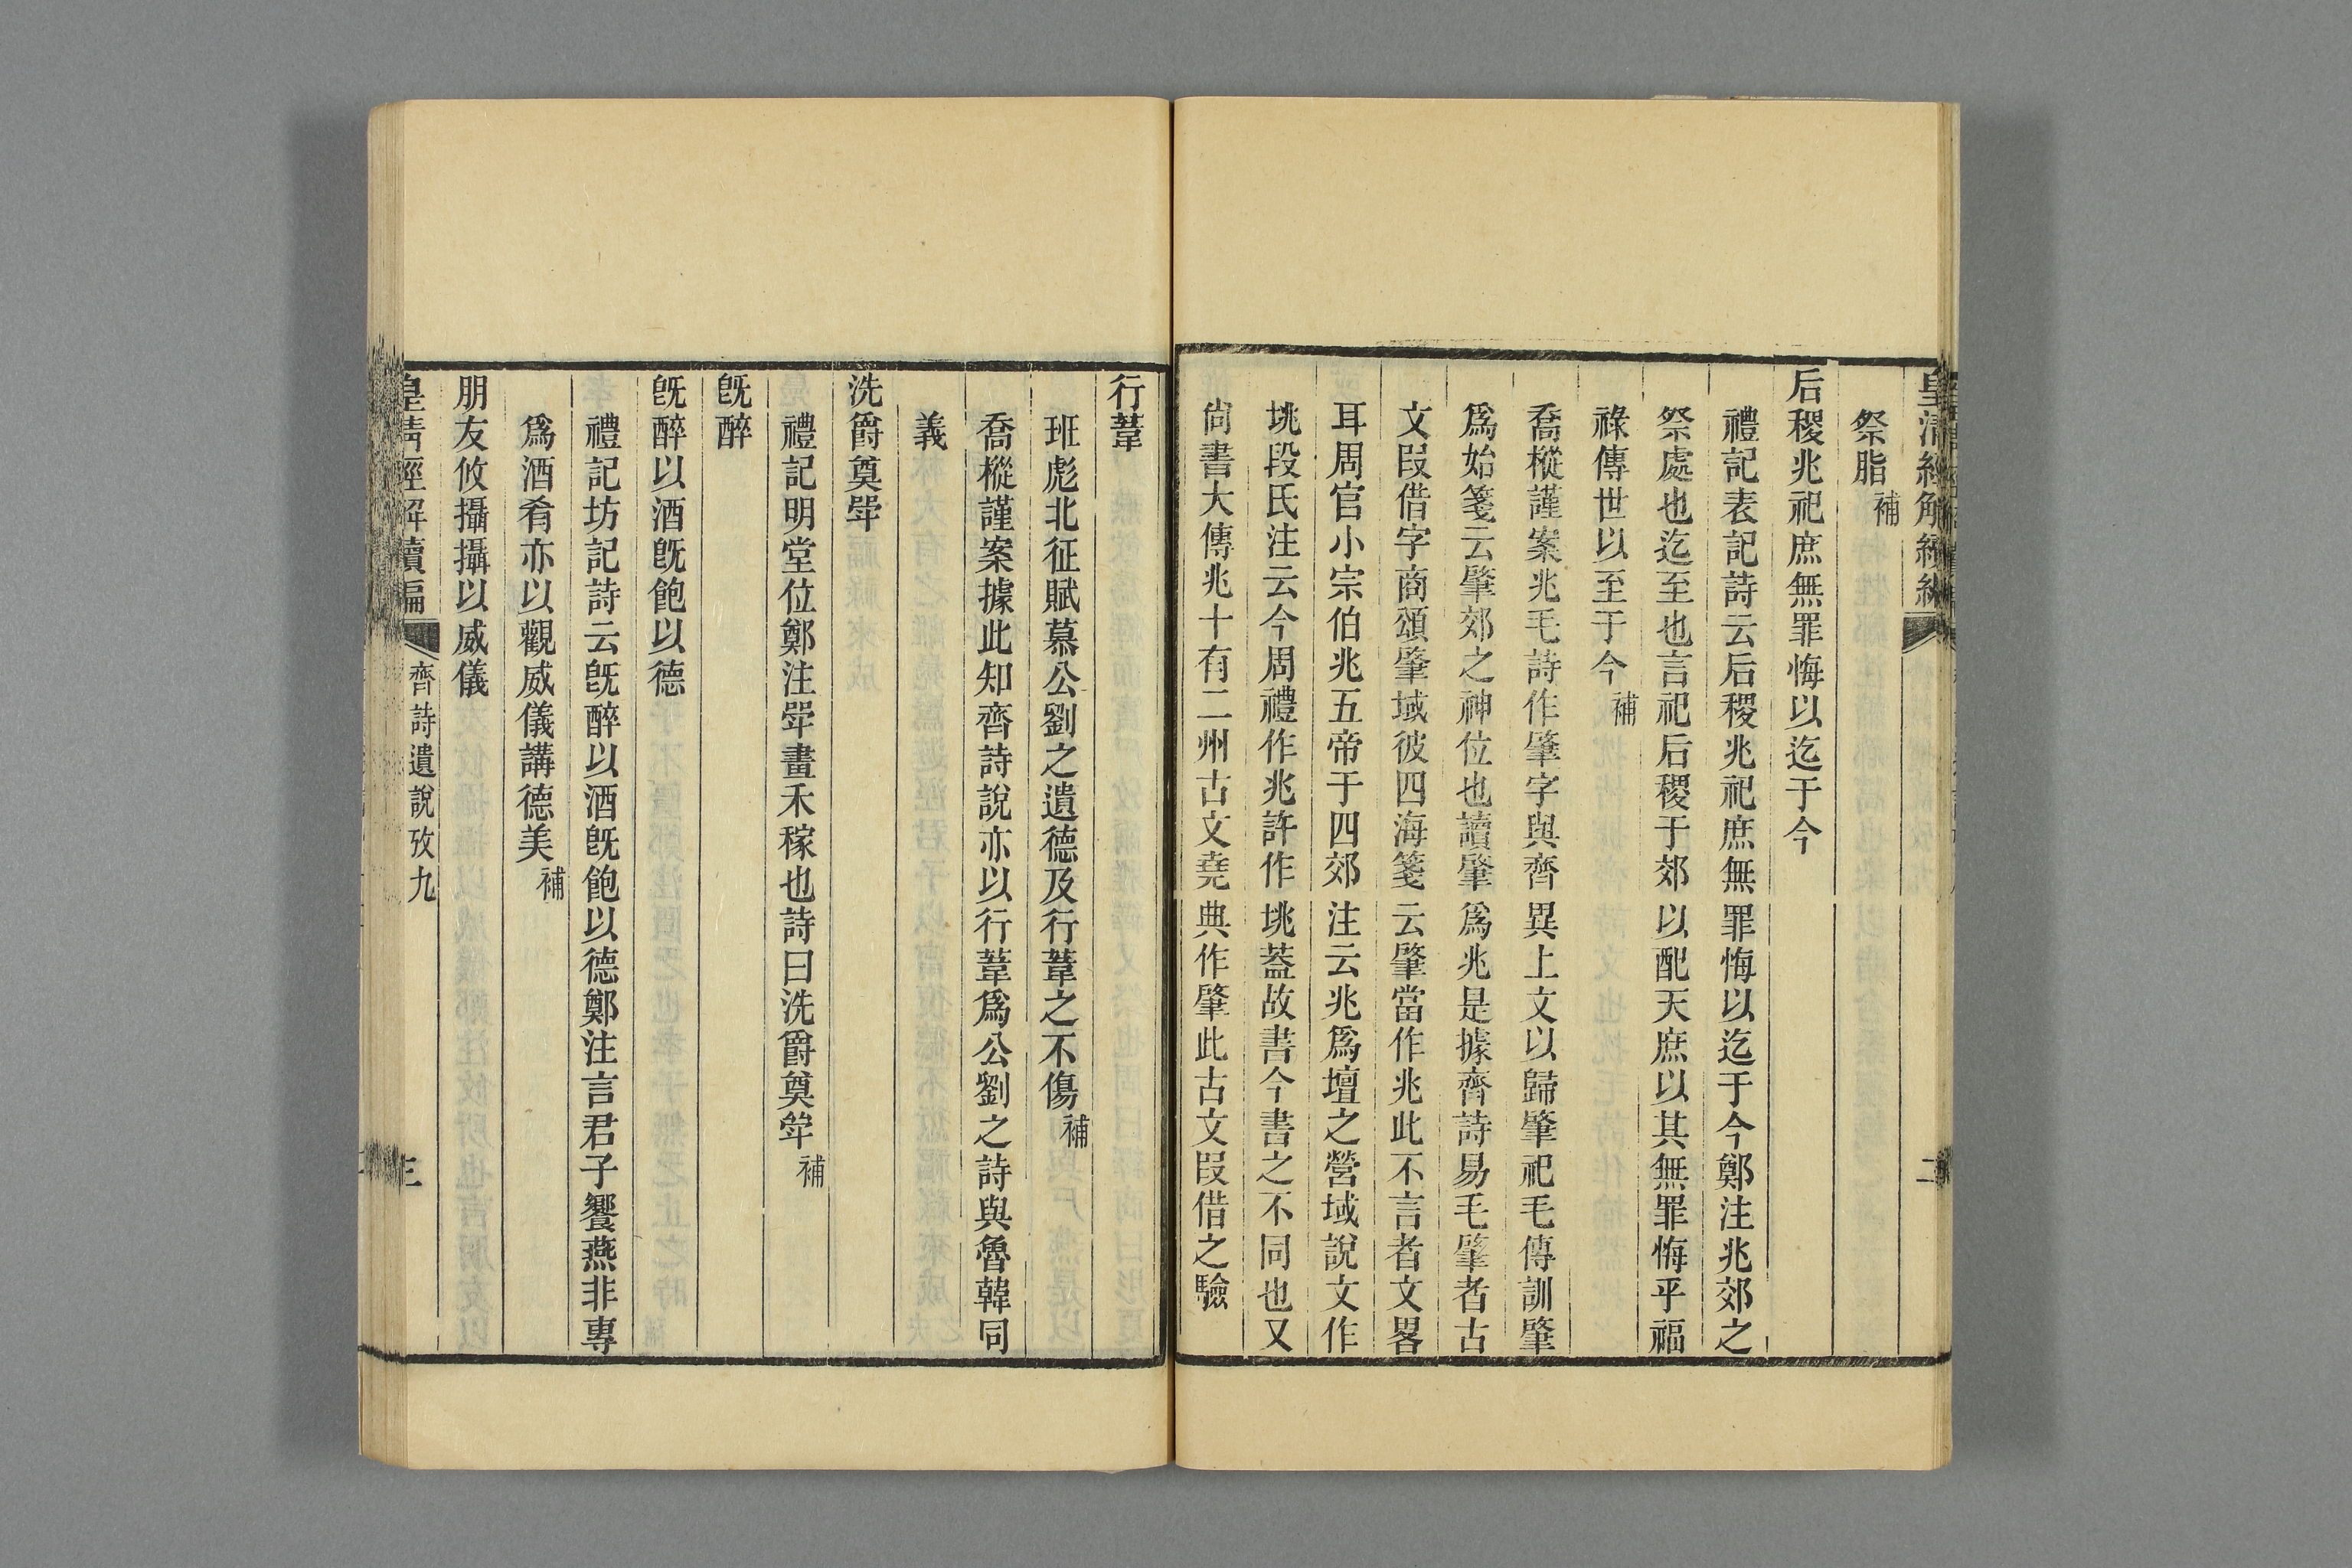 祭脂補
后稷兆祀庶無罪悔以迄于今
禮記表記詩云后稷兆祀庶無罪悔以迄于今鄭注兆郊之
祭處也迄至也言祀后稷于郊以配天庶以其無罪悔乎福
祿傳世以至于今補
喬樅謹案兆毛詩作肇字與齊異上文以歸肇祀毛傳訓肇
爲始箋云肇郊之神位也讀肇爲兆是據齊詩易毛肇者古
文叚借字商頌肇域彼四海箋云肇當作兆此不言者文畧
耳周官小宗伯兆五帝于四郊注云兆爲壇之營域說文作
垗段氏注云今周禮作兆許作垗蓋故書今書之不同也又
尙書大傳兆十有二州古文堯典作肇此古文叚借之驗
行葦
班彪北征賦慕公劉之遺德及行葦之不傷補
喬樅謹案據此知齊詩說亦以行葦爲公劉之詩與魯韓同
義
洗爵奠斝
禮記明堂位鄭注斝畫禾稼也詩曰洗爵奠斝補
旣醉
旣醉以酒旣飽以德
禮記坊記詩云旣醉以酒旣飽以德鄭注言君子饗燕非專
爲酒肴亦以觀威儀講德美補
朋友攸攝攝以威儀
皇清經解續編 齊詩遺說攷九 三